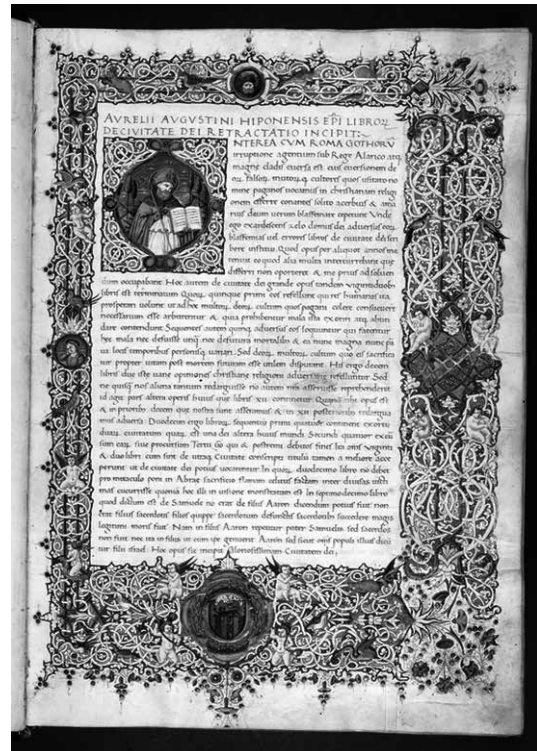 AVRELII AVGVSTINI HIPONENSIS EPI LIBROR
DECIVITATE DEI RETRACTATIO INCIPIT:
NTEREA CVM ROMA GOTHORV
irruptione agentium sub Rege Alarico atq
magne cladis euersa est eius euersionem de
falsorq multorq cultores quos usitato no
mine paganos uocamus in christianam religi
onem efferre conantes solito acerbius & ama
rius deum uerum blasfemare ceperunt Vnde
ego exardescens zelo domus dei aduersus eorq
blasfemias uel errores libros de ciuitate dei scri
bere institui. Quod opus per aliquot annos me
tenuit eo quod alia multa intercurrebant que
differri non oporteret & me prius ad soluen
dum occupabant. Hoc autem de ciuitate dei grande opus tandem uigintiduob
libris est terminatum Quorq quinque primi eos refellunt qui res humanas ita
prosperari uolunt ut ad hoc multorq deorq cultum quos pagani colere consueuert
necessarium esse arbitrentur & quia prohibentur mala ista exoriri atq abun
dare contendunt Sequentes autem quinq aduersus eos loquuntur qui fatentur
hec mala nec defuisse unq nec defutura mortalib & ea nunc magna nunc
locis temporibus personisq uariari. Sed deorq multorq cultum quo eis sacrifica
tur propter uitam post mortem futuram esse utilem disputant His ergo decem
libris due iste uane opiniones christiane religioni aduersarie refelluntur Sed
ne quisq nos aliena tantum redarguisse no autem nra asseruisse reprehenderet
id agit pars altera operis huius que libris xii continetur Quanq ubi opus est
& in prioribus decem que nostra sunt asseramus & in xii posterioribus redargua
mus aduersa Duodecim ergo librorq sequentium primi quatuor continent exortu
duarq ciuitatum quarq est una dei altera huius mundi Secundi quatuor excur
sum earq siue procursum Tertii & postremi debitos fines Ita oms uiginti
& duo libri cum sint de utraq Ciuitate conscripti titulum tamen a meliore acce
perunt ut de ciuitate dei potius uocarentur In quorq duodecimo libro no debet
pro miraculo poni in Abrae sacrificio flamam celitus factam inter diuisas uicti
mas cucurrisse quonia hoc illi in uisione monstratum est In septimodecimo libro
quod dictum est de Samuele no erat de filiis Aaron dicendum potius fuit non
erat filius sacerdotis filios quippe sacerdotum defunctis sacerdotib succedere magis
legitimi moris fuit Nam in filiis Aaron reperitur pater Samuelis sed sacerdos
non fuit nec ita in filiis ut eum ipe genuerit Aaron sed sicut oms populi illius dicu
tur filii israel. Hoc opus sic incipit Gloriosissimam Ciuitatem dei;